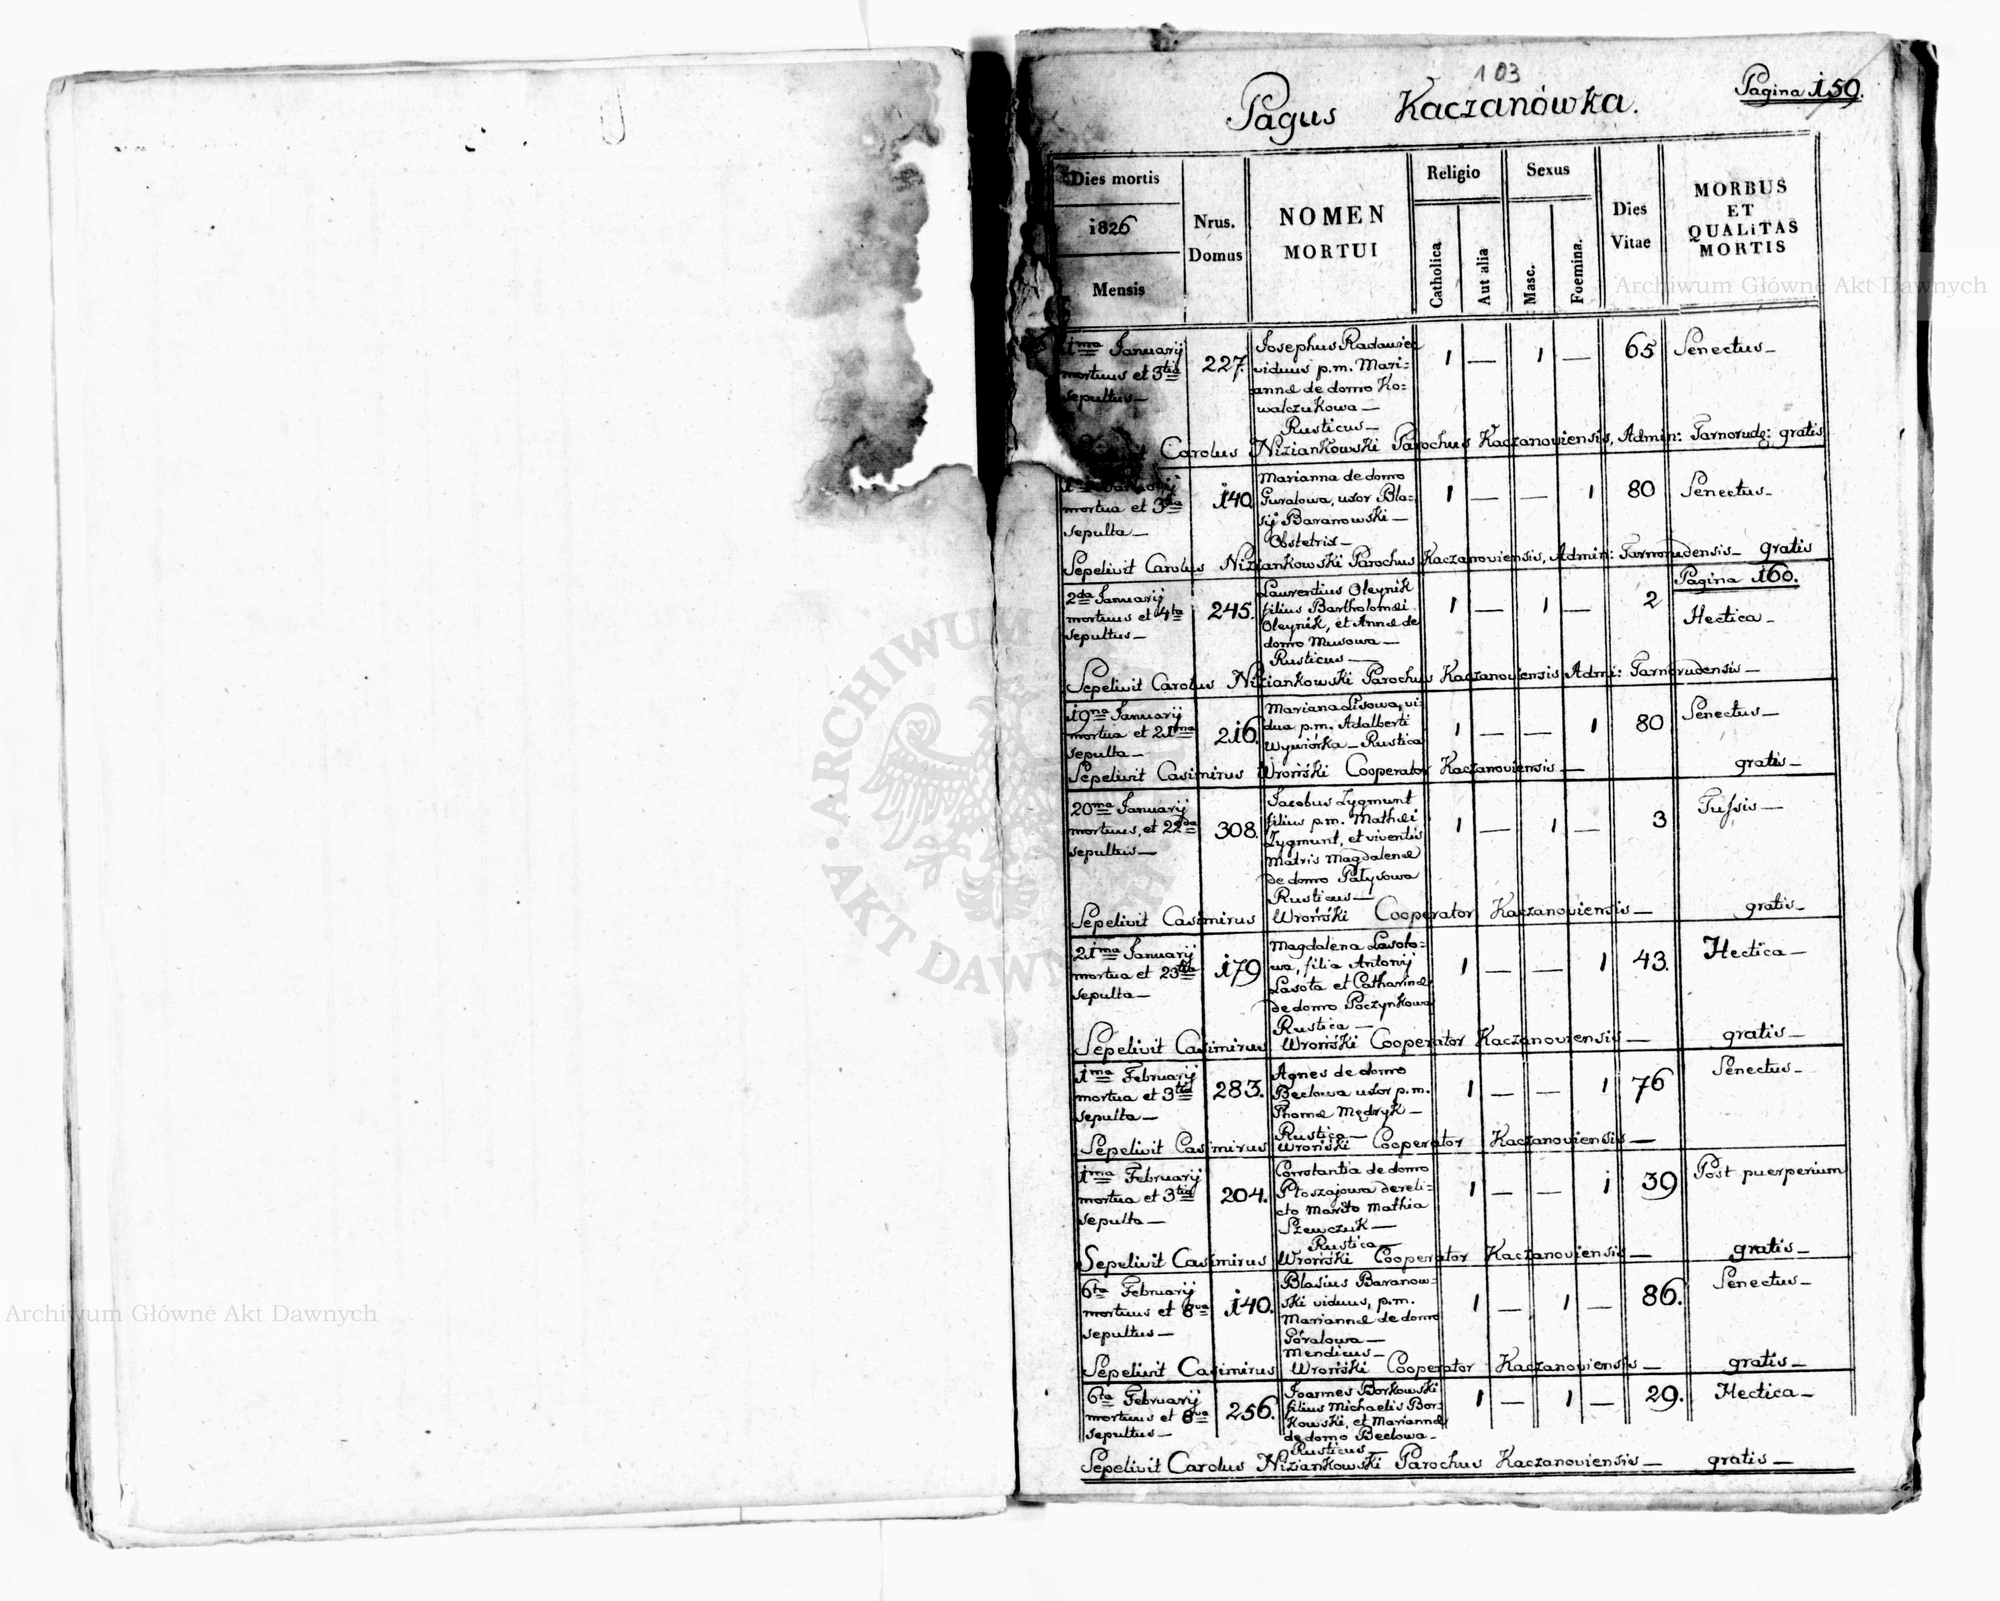 103
Pagina 159.
Pagus Kaczanówka.
Dies mortis
1826
Mensis
Nrus.
Domus
NOMEN
MORTUI
Religio
Catholica
Aut alia
Sexus
Masc.
Foemina.
Dies
Vitae
MORBUS
ET
QUALiTAS
MORTIS
1ma Januarij
mortuus et 3tia
sepultus—
227.
Josephus Radawiec
viduus p.m. Mari-
annæ de domo Ko-
walczukowa—
Rusticus—
1 — 1 — 65 Senectus—
Carolus Niziankowski Parochus Kaczanoviensis, Admin: Tarnorude: gratis
1ma Januarij
mortua et 3tia
sepulta—
140
Marianna de domo
Guralowa, uxor Bla-
sij Baranowski—
Obstetrix—
1 — — 1 80 Senectus—
Sepelivit Carolus Niziankowski Parochus Kaczanoviensis, Admin: Tarnorudensis— gratis
Pagina 160.
2da Januarij
mortuus et 4ta
sepultus—
245.
Laurentius Oleynik
filius Bartholomæi
Oleynik, et Annæ de
domo Musowa—
Rusticus—
1 — 1 — 2 Hectica—
Sepelivit Carolus Niziankowski Parochus Kaczanoviensis Admi: Tarnorudensis—
19na Januarij
mortua et 21ma
sepulta—
216.
Mariana Lisowa, vi-
dua p.m. Adalberti
Wywiórka—Rustica
1 — — 1 80 Senectus—
Sepelivit Casimirus Wroński Cooperator Kaczanoviensis— gratis—
20ma Januarij
mortuus, et 22da
sepultus—
308.
Jacobus Zygmunt
filius p.m. Mathæi
Zygmunt, et viventis
Matris Magdalenæ
de domo Patysowa
Rusticus—
1 — 1 — 3 Tussis—
Sepelivit Casimirus Wroński Cooperator Kaczanoviensis— gratis—
21ma Januarij
mortua et 23tia
sepulta—
179
Magdalena Lasoto-
wa, filia Antonij
Lasota et Catharinæ
de domo Poczynkowa
Rustica—
1 — — 1 43. Hectica—
Sepelivit Casimirus Wroński Cooperator Kaczanoviensis— gratis—
1ma Februarij
mortua et 3tia
sepulta—
283.
Agnes de domo
Beclowa uxor p.m.
Thomæ Mędryk—
Rustica—
1 — — 1 76 Senectus—
Sepelivit Casimirus Wroński Cooperator Kaczanoviensis—
1ma Februarij
mortua et 3tia
sepulta—
204.
Constantia de domo
Ptoszajowa dereli-
cto marito Mathia
Szewczuk—
Rustica—
1 — — 1 39 Post puerperium
Sepelivit Casimirus Wroński Cooperator Kaczanoviensis— gratis—
6ta Februarij
mortuus et 8va
sepultus—
140.
Blasius Baranow-
ski viduus, p.m.
Mariannæ de domo
Góralowa—
Mendicus—
1 — 1 — 86. Senectus—
Sepelivit Casimirus Wroński Cooperator Kaczanoviensis— gratis—
6ta Februarij
mortuus et 8va
sepultus—
256.
Joannes Borkowski
filius Michaelis Bor-
kowski, et Mariannæ
de domo Beclowa—
Rusticus—
1 — 1 — 29. Hectica—
Sepelivit Carolus Niziankowski Parochus Kaczanoviensis— gratis—
Archiwum Główne Akt Dawnych
Archiwum Główne Akt Dawnych